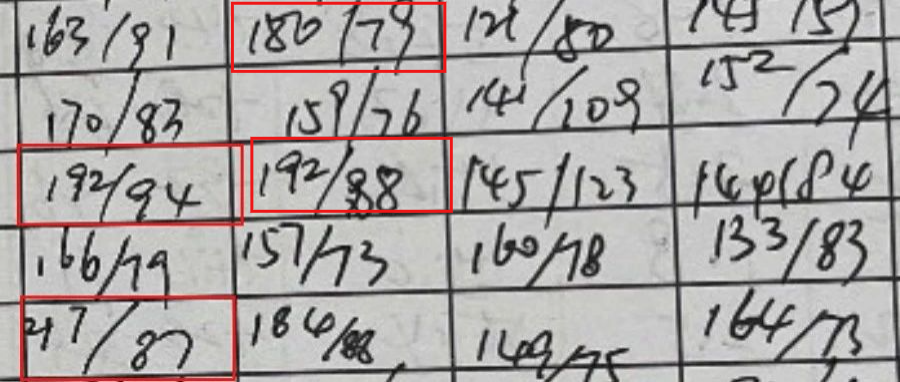 163/91 180/79 121/80
170/83 159/76 141/109 152/74
192/94 192/88 145/123 144/84
166/79 157/73 160/78 133/83
217/87 184/88 149/75 164/73